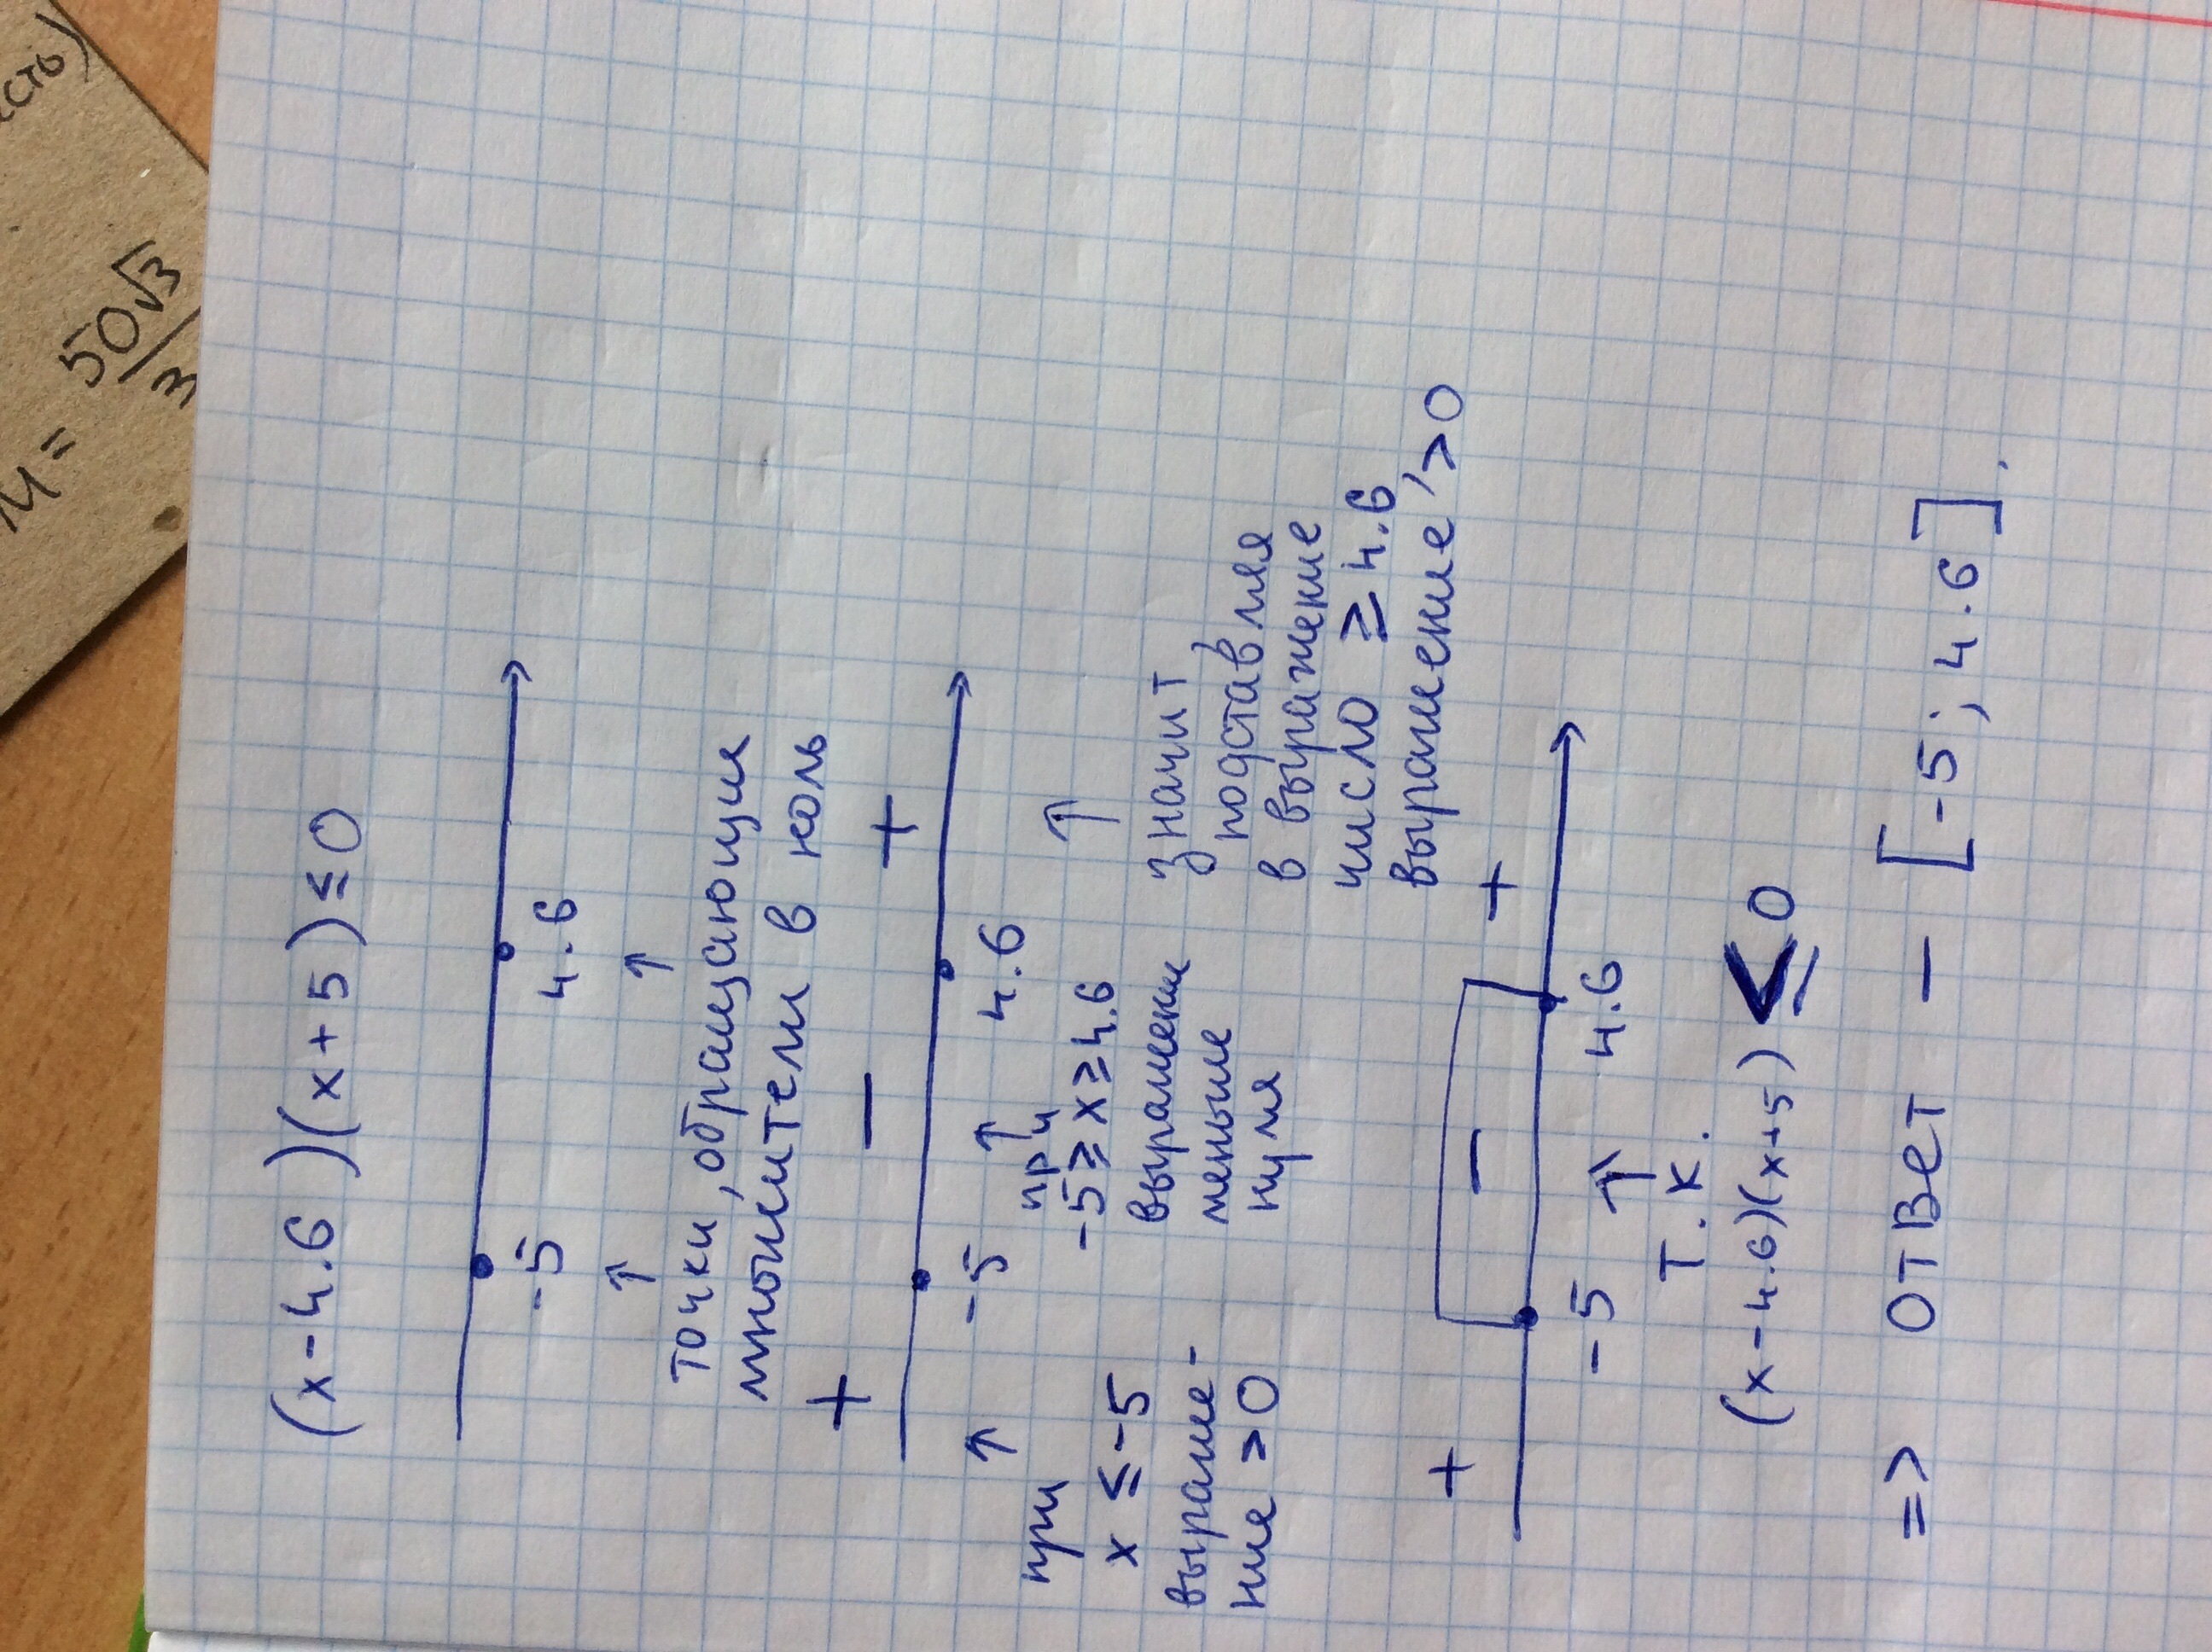 сть)
= 50√3
3
(x-4.6)(x+5)≤0
-5 4.6
↑ ↑
точки, обращающие
множители в ноль
+ − +
-5 4.6
↑ ↑ ↑
при
x ≤ -5
выраже-
ние >0
при
-5≥x≥4.6
выражени
меньше
нуля
значит
подставляя
в выражение
число ≥4.6
выражение, >0
+ − +
-5 4.6
⇑
т.к.
(x-4.6)(x+5) ≤0
=> ответ − [-5; 4.6].